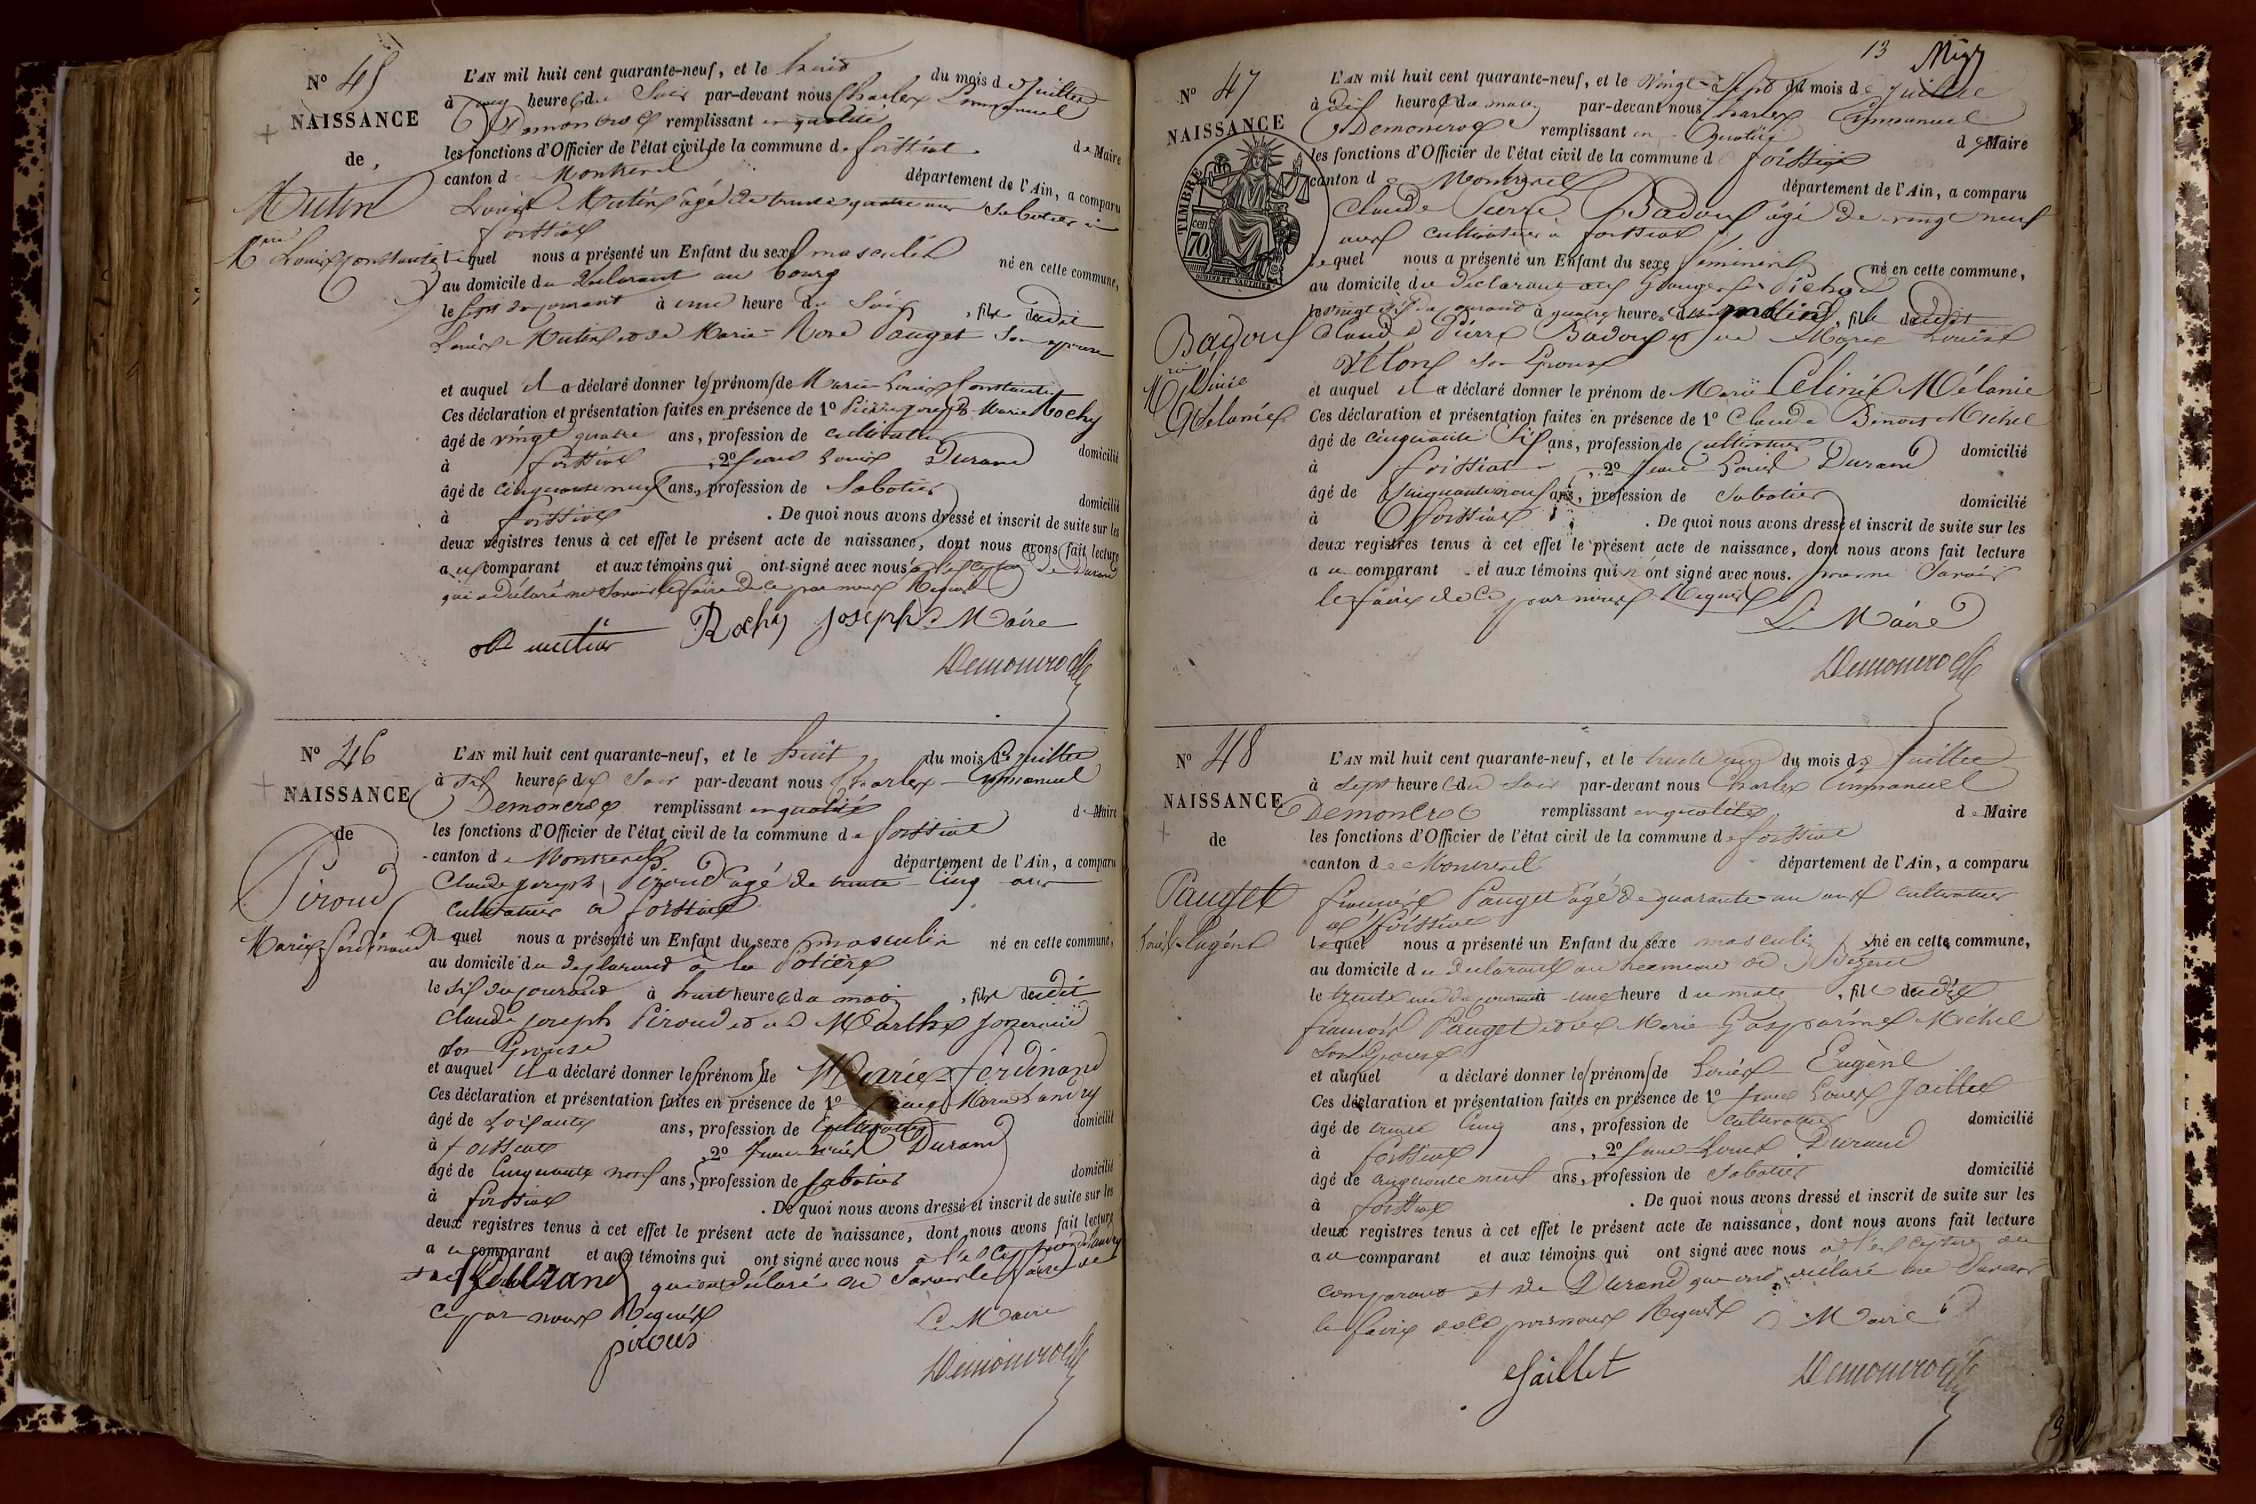 N° 45
NAISSANCE
de
Mutin
Marie Louis Constantin
L'AN mil huit cent quarante-neuf, et le huit du mois de Juillet
à cinq heures du Soir par-devant nous Charles Emmanuel
Demoncroz remplissant en qualité
les fonctions d'Officier de l'état civil de la commune de foissiat de Maire
canton de Montrevel département de l'Ain, a comparu
Louis Mutin âgé de trente quatre ans Sabotier à
foissiat
lequel nous a présenté un Enfant du sexe masculin né en cette commune,
au domicile du declarant au bourg
le sept du courant à une heure du Soir, fils dudit
Louis Mutin et de Marie-Rose Pauget Son epouse
et auquel il a déclaré donner les prénoms de Marie Louis Constantin
Ces déclaration et présentation faites en présence de 1° Pierre joseph Marie Rochy
âgé de vingt quatre ans, profession de cultivateur domicilié
à foissiat, 2° Jean Louis Durand
âgé de cinquante neuf ans, profession de Sabotier domicilié
à foissiat. De quoi nous avons dressé et inscrit de suite sur les
deux registres tenus à cet effet le présent acte de naissance, dont nous avons fait lecture
au comparant et aux témoins qui ont signé avec nous à l'exception de Durand
qui a déclaré ne Savoir le faire de ce par nous Requis
Rochy joseph Le Maire
Demoncroz
N° 46
NAISSANCE
de
Piroud
Marie-Ferdinand
L'AN mil huit cent quarante-neuf, et le huit du mois de juillet
à six heures du Soir par-devant nous Charles Emmanuel
Demoncroz remplissant en qualité de Maire
les fonctions d'Officier de l'état civil de la commune de foissiat
canton de Montrevel département de l'Ain, a comparu
Claude joseph Piroud âgé de trente cinq ans
cultivateur à foissiat
lequel nous a présenté un Enfant du sexe masculin né en cette commune,
au domicile du declarant à la Potière
le six du courant à huit heures du matin, fils dudit
Claude joseph Piroud et de Marthe
Son Epouse
et auquel il a déclaré donner les prénoms de Marie-Ferdinand
Ces déclaration et présentation faites en présence de 1° Marie Landry
âgé de Soixante ans, profession de Cultivateur domicilié
à foissiat, 2° Jean Louis Durand
âgé de Cinquante neuf ans, profession de Sabotier domicilié
à foissiat. De quoi nous avons dressé et inscrit de suite sur les
deux registres tenus à cet effet le présent acte de naissance, dont nous avons fait lecture
au comparant et aux témoins qui ont signé avec nous à l'exception de Landry
et de Durand qui ont déclaré ne Savoir le faire de
ce par nous Requis Le Maire
pirous
Demoncroz
13
N° 47
NAISSANCE
TIMBRE
cen. 70
Badoux
Marie Céline
Mélanie
L'AN mil huit cent quarante-neuf, et le vingt-sept du mois de Juillet
à dix heures du matin par-devant nous Charles Emmanuel
Demoncroz remplissant en qualité de Maire
les fonctions d'Officier de l'état civil de la commune de foissiat
canton de Montrevel département de l'Ain, a comparu
Claude Pierre Badoux âgé de vingt neuf
ans cultivateur à foissiat
lequel nous a présenté un Enfant du sexe féminin né en cette commune,
au domicile du déclarant aux Granges Pichod
le vingt six du courant à quatre heures du matin, fille dudit
Claude Pierre Badoux et de Marie Louise
Velon son Epouse
et auquel il a déclaré donner le prénom de Marie Céline Mélanie
Ces déclaration et présentation faites en présence de 1° Claude Benoit Michel
âgé de cinquante Six ans, profession de cultivateur domicilié
à foissiat, 2° Jean Louis Durand
âgé de Cinquante neuf ans, profession de Sabotier domicilié
à foissiat. De quoi nous avons dressé et inscrit de suite sur les
deux registres tenus à cet effet le présent acte de naissance, dont nous avons fait lecture
au comparant et aux témoins qui n'ont signé avec nous. pour ne Savoir
le faire de ce par nous Requis
Le Maire
Demoncroz
N° 48
NAISSANCE
de
Pauget
Louis-Eugène
L'AN mil huit cent quarante-neuf, et le trente un du mois de Juillet
à sept heures du soir par-devant nous Charles Emmanuel
Demoncroz remplissant en qualité de Maire
les fonctions d'Officier de l'état civil de la commune de foissiat
canton de Montrevel département de l'Ain, a comparu
françois Pauget âgé de quarante-un ans cultivateur
à foissiat
lequel nous a présenté un Enfant du sexe masculin né en cette commune,
au domicile du declarant au hameau de
le trente un du courant à une heure du matin, fils dudit
françois Pauget et de Marie Gasparine Michel
Son Epouse
et auquel a déclaré donner les prénoms de Louis Eugène
Ces déclaration et présentation faites en présence de 1° Jean Louis Jaillet
âgé de trente Cinq ans, profession de Cultivateur domicilié
à foissiat, 2° Jean-Louis Durand
âgé de cinquante neuf ans, profession de Sabotier domicilié
à foissiat. De quoi nous avons dressé et inscrit de suite sur les
deux registres tenus à cet effet le présent acte de naissance, dont nous avons fait lecture
au comparant et aux témoins qui ont signé avec nous à l'exception du
comparant et de Durand qui ont déclaré ne Savoir
le faire de ce par nous Requis Le Maire
Jaillet
Demoncroz